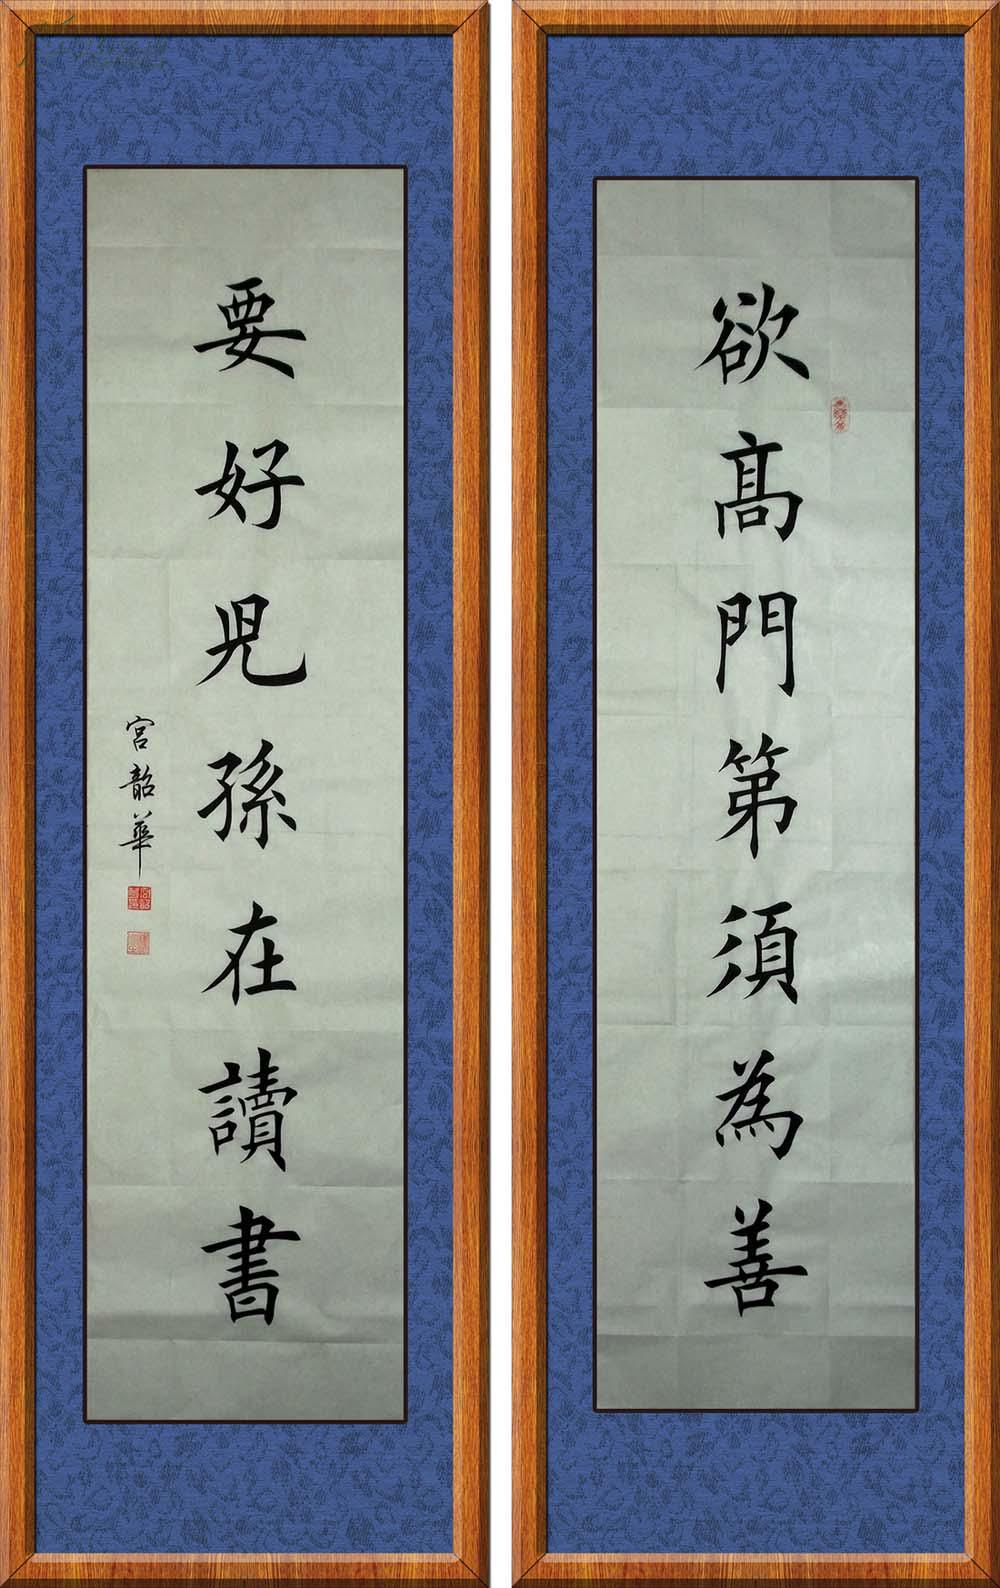 欲高門第須為善
要好兒孫在讀書
宮韶華